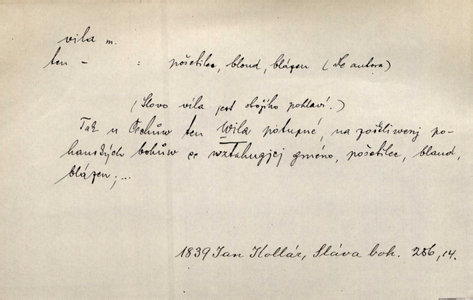 vila m.
ten – : pošetilec, bloud, blázen (Le autora)
(Slovo vila jest obojího pohlaví.)
Tak u Čechůw ten Wila potupné, na
hanských bohůw se wztahugjcj gméno, pošetilec, bloud,
blázen; ...
1839 Jan Kollár, Sláva boh. 256, 14.